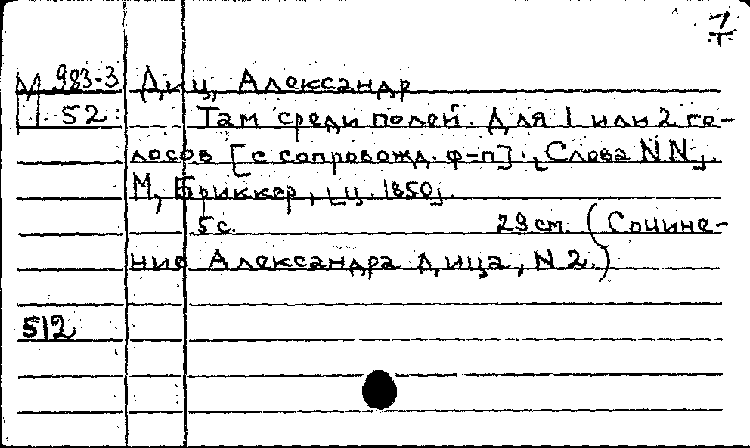 1
т
М 983-3 Диц, Александр
52 Там среди полей. Для 1 или 2 го-
лосов [с сопровожд. ф-п]. [Слова NN].
М, Бриккер, [ц. 1850].
5 с. 29 см. (Сочине-
ние Александра Дица, N 2.)
512